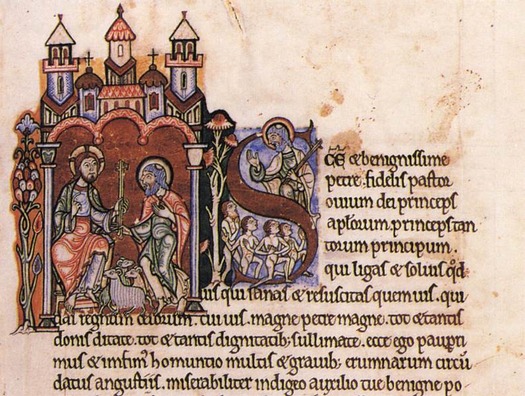 SCĒ & benignissime
petre. fidelis pastor
ouium dei princeps
aplōrum. princeps tan
torum principum.
qui ligas & soluis qđ
uis qui sanas & resuscitas quem uis. qui
das regnum celorum. cui uis. magne petre magne. tot & tantis
donis ditate. tot & tantis dignitatib; sullimate. ecce ego paupri
mus & infim; homuntio multis & grauib; erumnarum circū
datus angustiis. miserabiliter indigeo auxilio tue benigne po